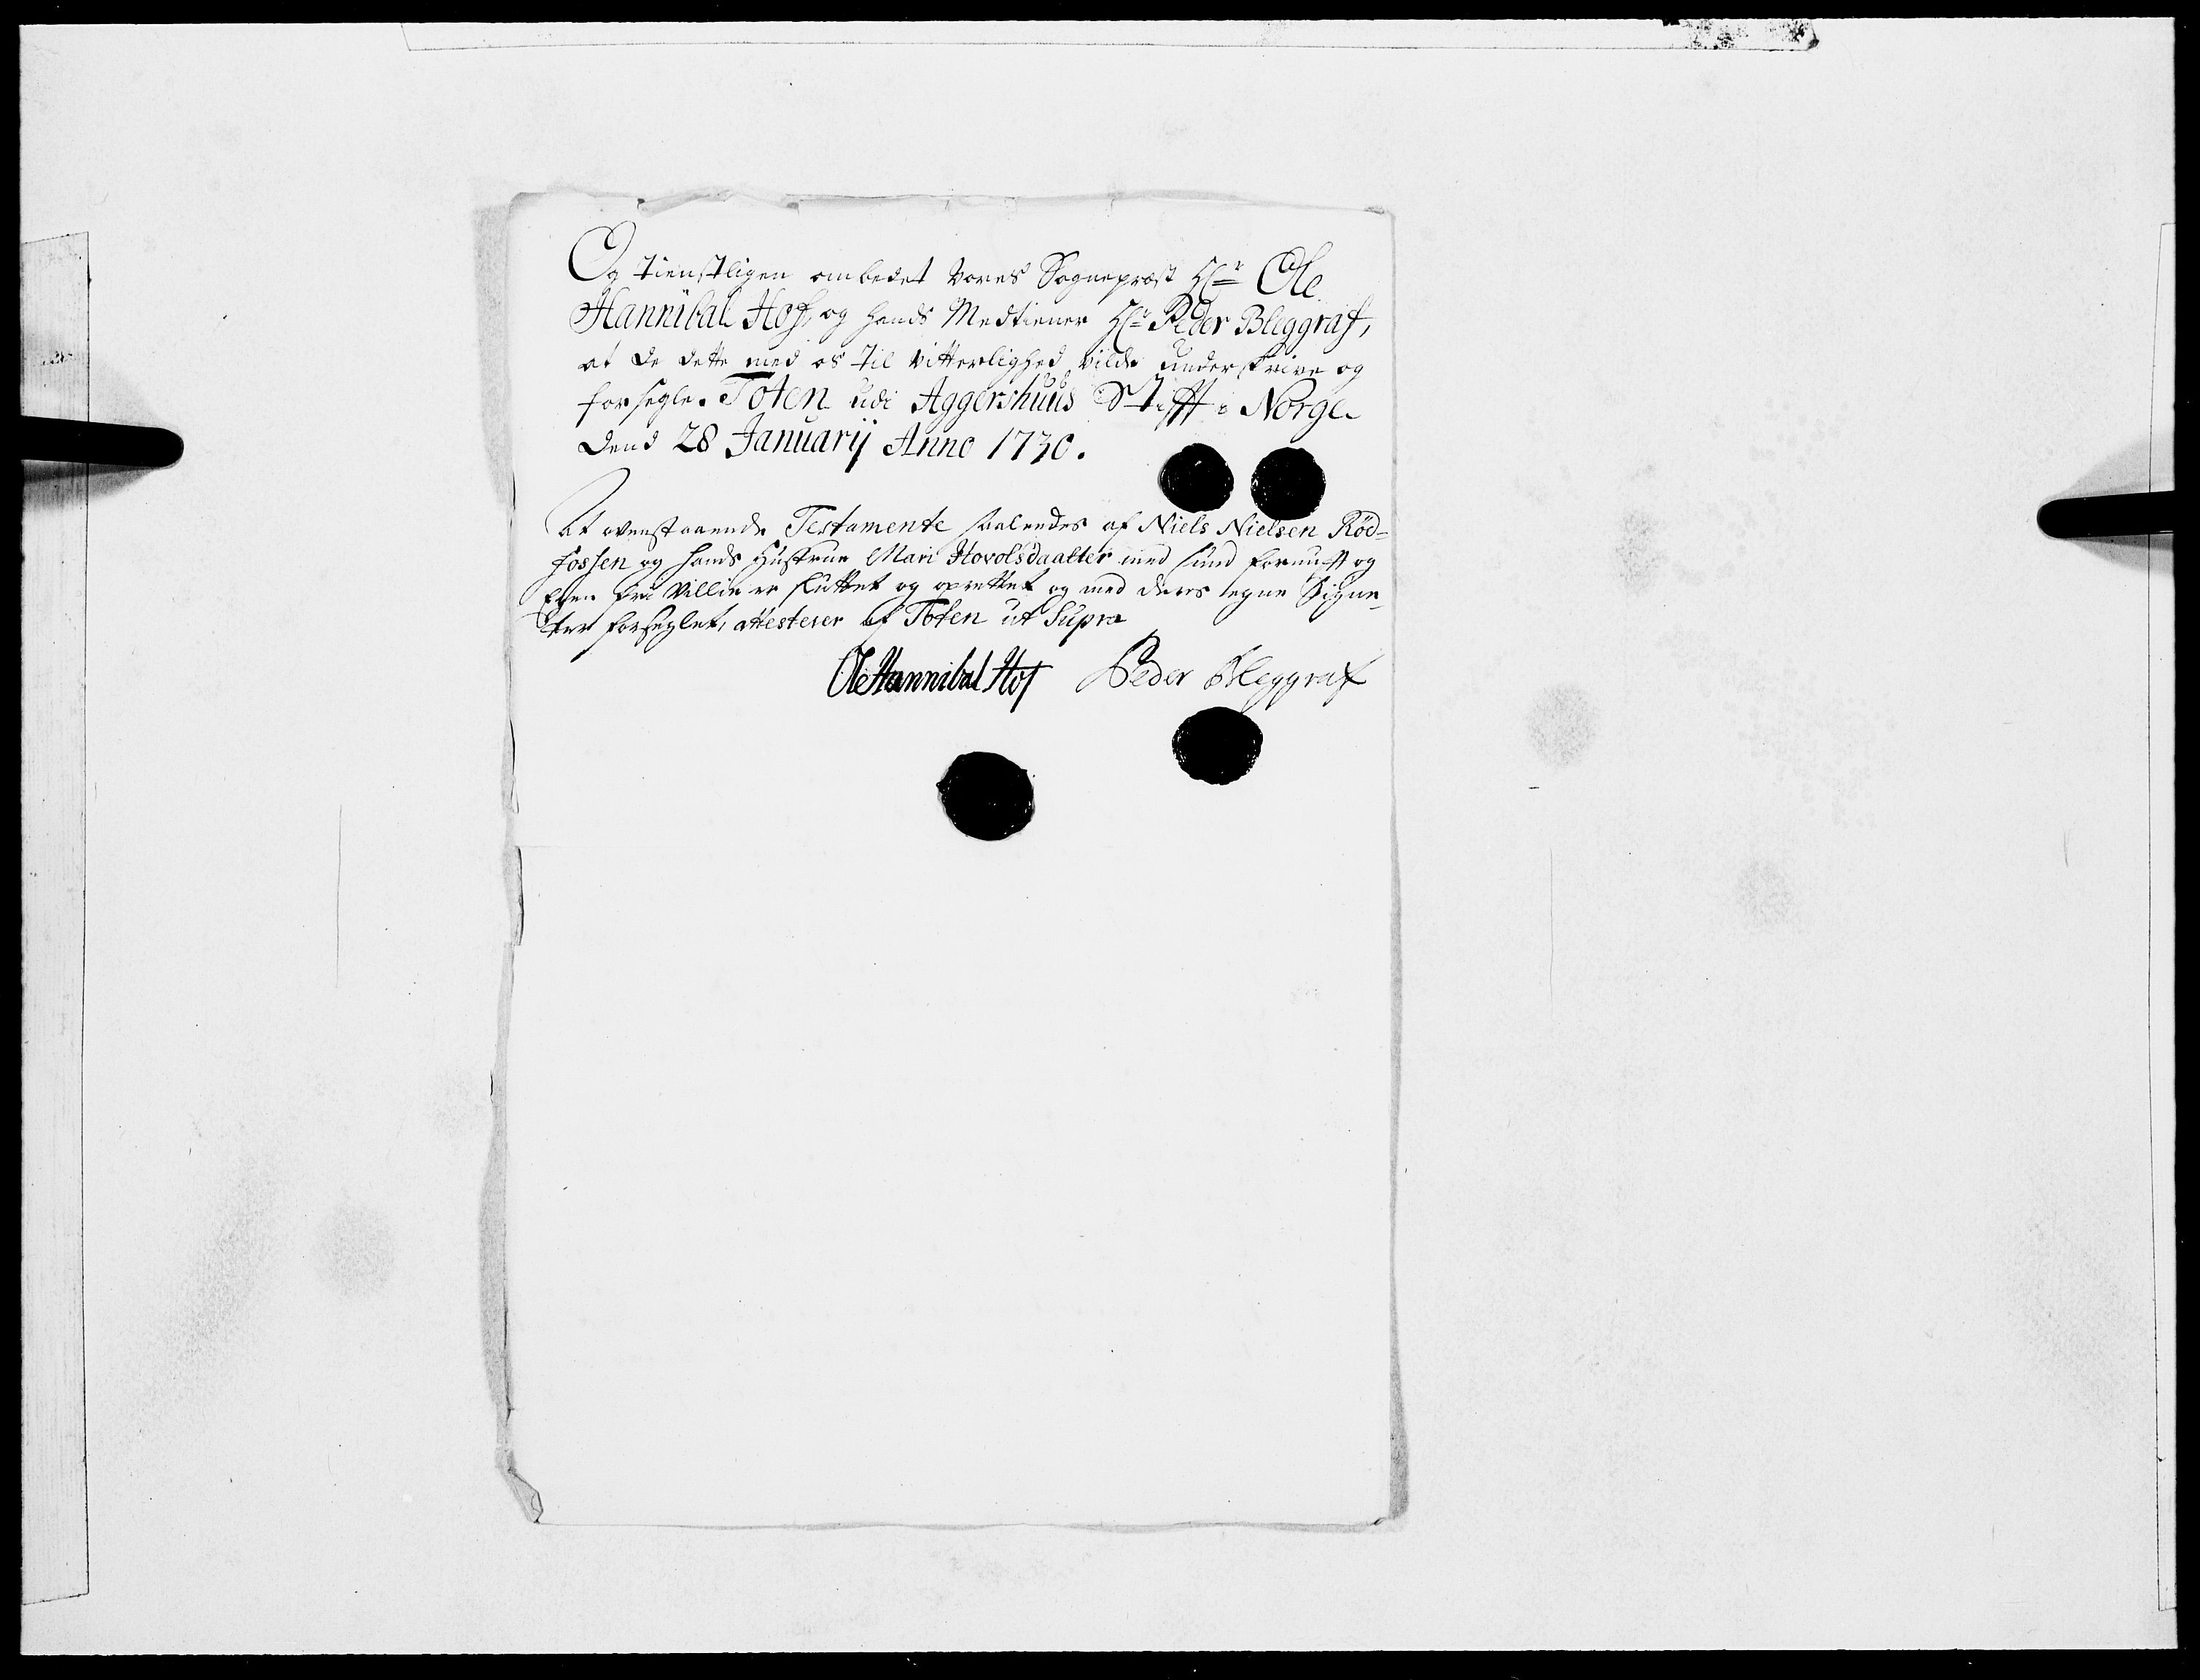 Og tienstligen ombedet Vores Sognepræst Hr Ole
Hannibal Hof, og hands Medtiener Hr Peder Bleggraf,
at de dette med os til vitterlighed vilde underskrive og
forsegle. Toten udi Aggershuus Stifft i Norge.
Dend 28 Januarij Anno 1730.
At ovenstaaende Testamente saaledes af Niels Nielsen Röd=
fossen og hands Hustrue Mari Hovolsdaatter med sund fornufft og
Egen fri Villie er sluttet og oprettet og med deres egne Signe-
ter forseglet, attesterer af Toten ut Supra
Ole Hannibal Hof Peder Bleggraf